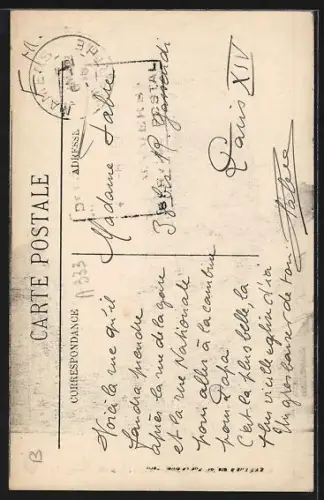 CARTE POSTALE
CORRESPONDANCE
ADRESSE
Voilà la rue qu'il
faudra prendre
après la rue de la gare
et la rue Nationale
pour aller à la
pour Papa
C'est la plus belle la
plus vieille église d'ici
Un gros baiser de ton
Madame Fabre
Bis Rue
Paris XIV
PARIS
POSTAL
A 333
B